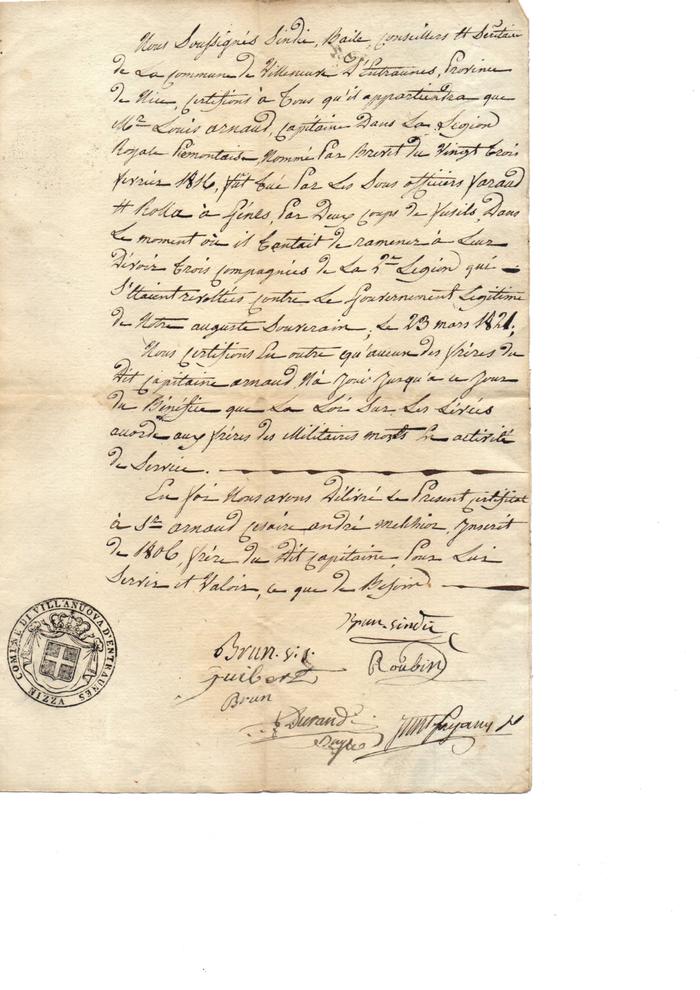 Nous Soussignés Sindic, Baile, Conseillers et Secrétaire
de La Commune de Villeneuve D'Entraunes, Province
de Nice, Certifions à Tous qu'il appartiendra que
Mr. Louis arnaud, Capitaine Dans La Legion
Royale Piemontaise Nommé Par Brevet du Vingt Trois
fevrier 1816, fût tué Par Les Sous officiers
et Rolla à Gênes, Par Deux Coups de fusils, Dans
Le moment où il tentait de ramener à Leur
Dévoir Trois Compagnies de La Legion qui
s'Etaient revoltées contre Le Gouvernement Legitime
de Notre auguste Souverain, Le 23 mars 1821;
Nous Certifions En outre qu'aucun des frères du
Dit Capitaine arnaud, N'a Joui Jusqu'a ce Jour
du Bénéfice que La Loi Sur Les Levées
accorde aux frères des Militaires morts En activité
de Service.
En foi Nous avons Délivré Le Present Certificat
à Sr. arnaud Cesaire andré melchior, Inscrit
de 1806, frère du Dit Capitaine Pour Lui
Servir et Valoir, ce que de Besoin
Brun Sindic
Brun
Roubin
Guibert
Brun
Durandi
COMUNE DI VILLANUOVA D'ENTRAUNES